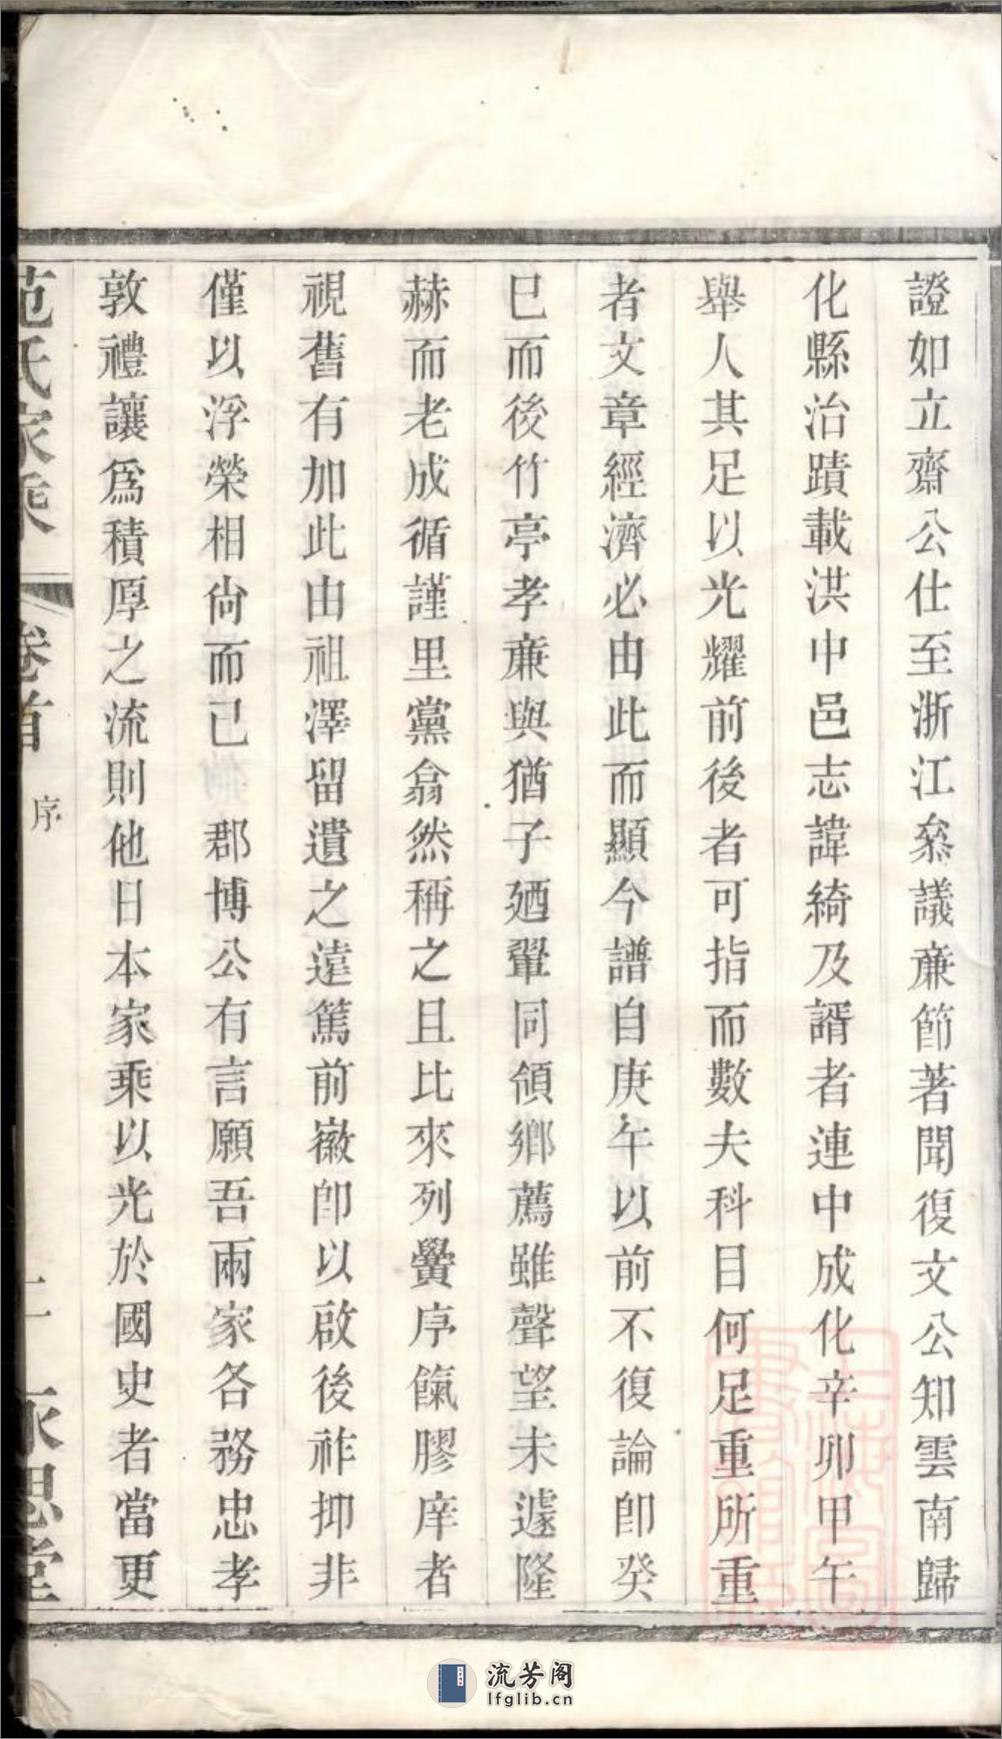 證如立齋公仕至浙江叅議亷節著聞復文公知雲南歸
化縣治蹟載洪中邑志諱綺及諝者連中成化辛卯甲午
舉人其足以光耀前後者可指而數夫科目何足重所重
者文章經濟必由此而顯今譜自庚午以前不復論卽癸
巳而後竹亭孝亷與猶子廼翬同領鄉薦雖聲望未遽隆
赫而老成循謹里黨翕然稱之且比來列黌序餼膠庠者
視舊有加此由祖澤留遺之遠篤前徽卽以啟後祚抑非
僅以浮榮相尙而已 郡博公有言願吾兩家各務忠孝
敦禮讓爲積厚之流則他日本家乘以光於國史者當更
范氏家乘 卷首 序 永思堂
流芳阁
lfglib.cn